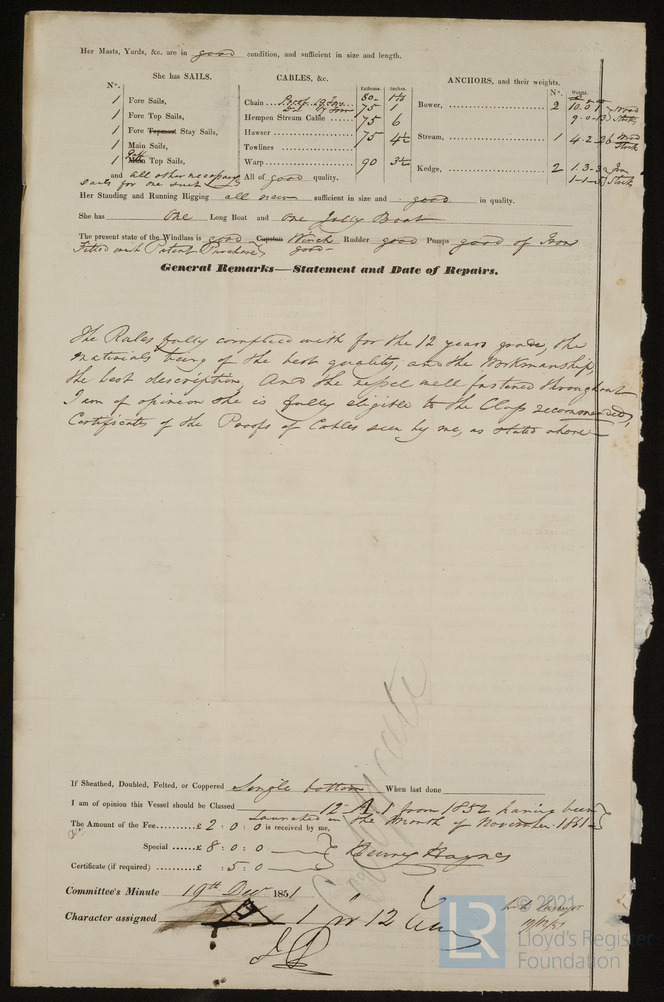 Her Masts, Yards, &c. are in good condition, and sufficient in size and length.
She has SAILS. CABLES, &c. ANCHORS, and their weights.
Nº. Fathoms. Inches. Nº. Weight.
1 Fore Sails, Chain Proof 19 Tons 80 Bower, 2 10.0.1 Wood
75 1 9.0.13 Stocks
1 Fore Top Sails, Hempen Stream Cable 75 6
1 Fore Topmast Stay Sails, Hawser 75 4½ Stream, 1 4.2.26 Wood Stock
1 Main Sails, Towlines
1 Main Top Sails, Warp 90 3½ Kedge, 2 1.3.3 Iron
1-1-5 Stock
and all other necessary All of good quality.
Sails for one suit
Her Standing and Running Rigging all new sufficient in size and good in quality.
She has One Long Boat and one Jolly Boat
The present state of the Windlass is good Capstan Winch good Rudder good Pumps good of Iron
Fitted with Patent Purchase
General Remarks—Statement and Date of Repairs.
The Rules fully complied with for the 12 years grade, the
materials being of the best quality, and the Workmanship
the best description, And the vessel well fastened throughout
I am of opinion she is fully eligible to the Class recommended,
Certificates of the Proofs of Cables seen by me, as stated above
Certificate
If Sheathed, Doubled, Felted, or Coppered Single bottom When last done
I am of opinion this Vessel should be Classed 12 A 1 from 1852 having been
Launched in the Month of November 1851
The Amount of the Fee £ 2 : 0 : 0 is received by me,
Special £ 8 : 0 : 0 Henry Haynes
Certificate (if required) £ : 5 : 0
Committee's Minute 19th Decr 1851
Character assigned A 1 for 12 Years
© 2021
LR
Lloyd's Register
Foundation